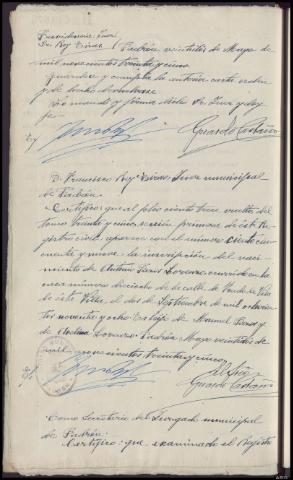 Providencia Juez
Sr. Rey Eiras
Padrón veintitres de Mayo de
mil novecientos treinta y cinco
Guárdese y cumpla la anterior carta orden
y
Lo mandó y firma dicho Sr. Juez y doy
fe
E/
Gerardo
D. Francisco Rey Eiras Juez municipal
de Padrón.
Certifico: que al folio ciento trece vuelto del
tomo treinta y cinco sección primera de este Re-
gistro civil, aparece con el número ciento cin-
cuenta y nueve la inscripción del naci-
miento de Lorenzo ocurrido en la
casa número dieciocho de la calle de
de esta Villa, el dos de Septiembre de mil ochocien-
tos noventa y ocho Es hijo de Manuel y
de Lorenzo. Padrón Mayo veintitres de
mil novecientos treinta y cinco
El Srio
Gerardo
Como Secretario del Juzgado municipal
de Padrón.
Certifico: que examinado el Registro